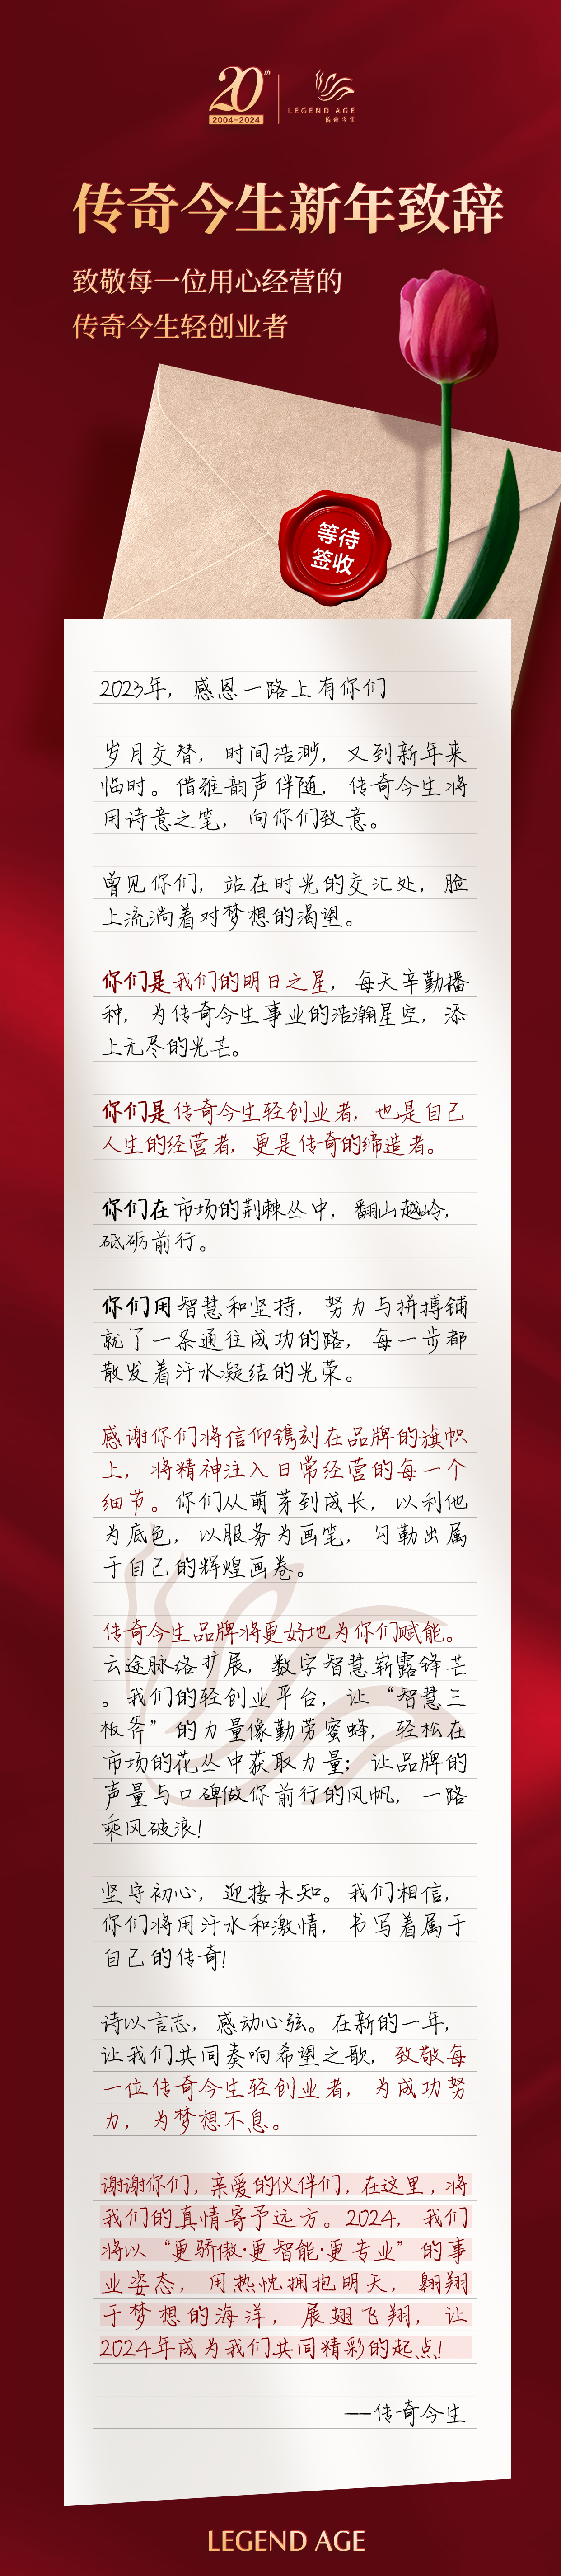 20th
2004-2024
LEGEND AGE
传奇今生
传奇今生新年致辞
致敬每一位用心经营的
传奇今生轻创业者
等待
签收
2023年，感恩一路上有你们
岁月交替，时间浩渺，又到新年来
临时。借雅韵声伴随，传奇今生将
用诗意之笔，向你们致意。
曾见你们，站在时光的交汇处，脸
上流淌着对梦想的渴望。
你们是我们的明日之星，每天辛勤播
种，为传奇今生事业的浩瀚星空，添
上无尽的光芒。
你们是传奇今生轻创业者，也是自己
人生的经营者，更是传奇的缔造者。
你们在市场的荆棘丛中，翻山越岭，
砥砺前行。
你们用智慧和坚持，努力与拼搏铺
就了一条通往成功的路，每一步都
散发着汗水凝结的光荣。
感谢你们将信仰镌刻在品牌的旗帜
上，将精神注入日常经营的每一个
细节。你们从萌芽到成长，以利他
为底色，以服务为画笔，勾勒出属
于自己的辉煌画卷。
传奇今生品牌将更好地为你们赋能。
云途脉络扩展，数字智慧崭露锋芒
。我们的轻创业平台，让“智慧三
板斧”的力量像勤劳蜜蜂，轻松在
市场的花丛中获取力量；让品牌的
声量与口碑做你前行的风帆，一路
乘风破浪！
坚守初心，迎接未知。我们相信，
你们将用汗水和激情，书写着属于
自己的传奇！
诗以言志，感动心弦。在新的一年，
让我们共同奏响希望之歌，致敬每
一位传奇今生轻创业者，为成功努
力，为梦想不息。
谢谢你们，亲爱的伙伴们，在这里，将
我们的真情寄予远方。2024，我们
将以“更骄傲·更智能·更专业”的事
业姿态，用热忱拥抱明天，翱翔
于梦想的海洋，展翅飞翔，让
2024年成为我们共同精彩的起点！
——传奇今生
LEGEND AGE